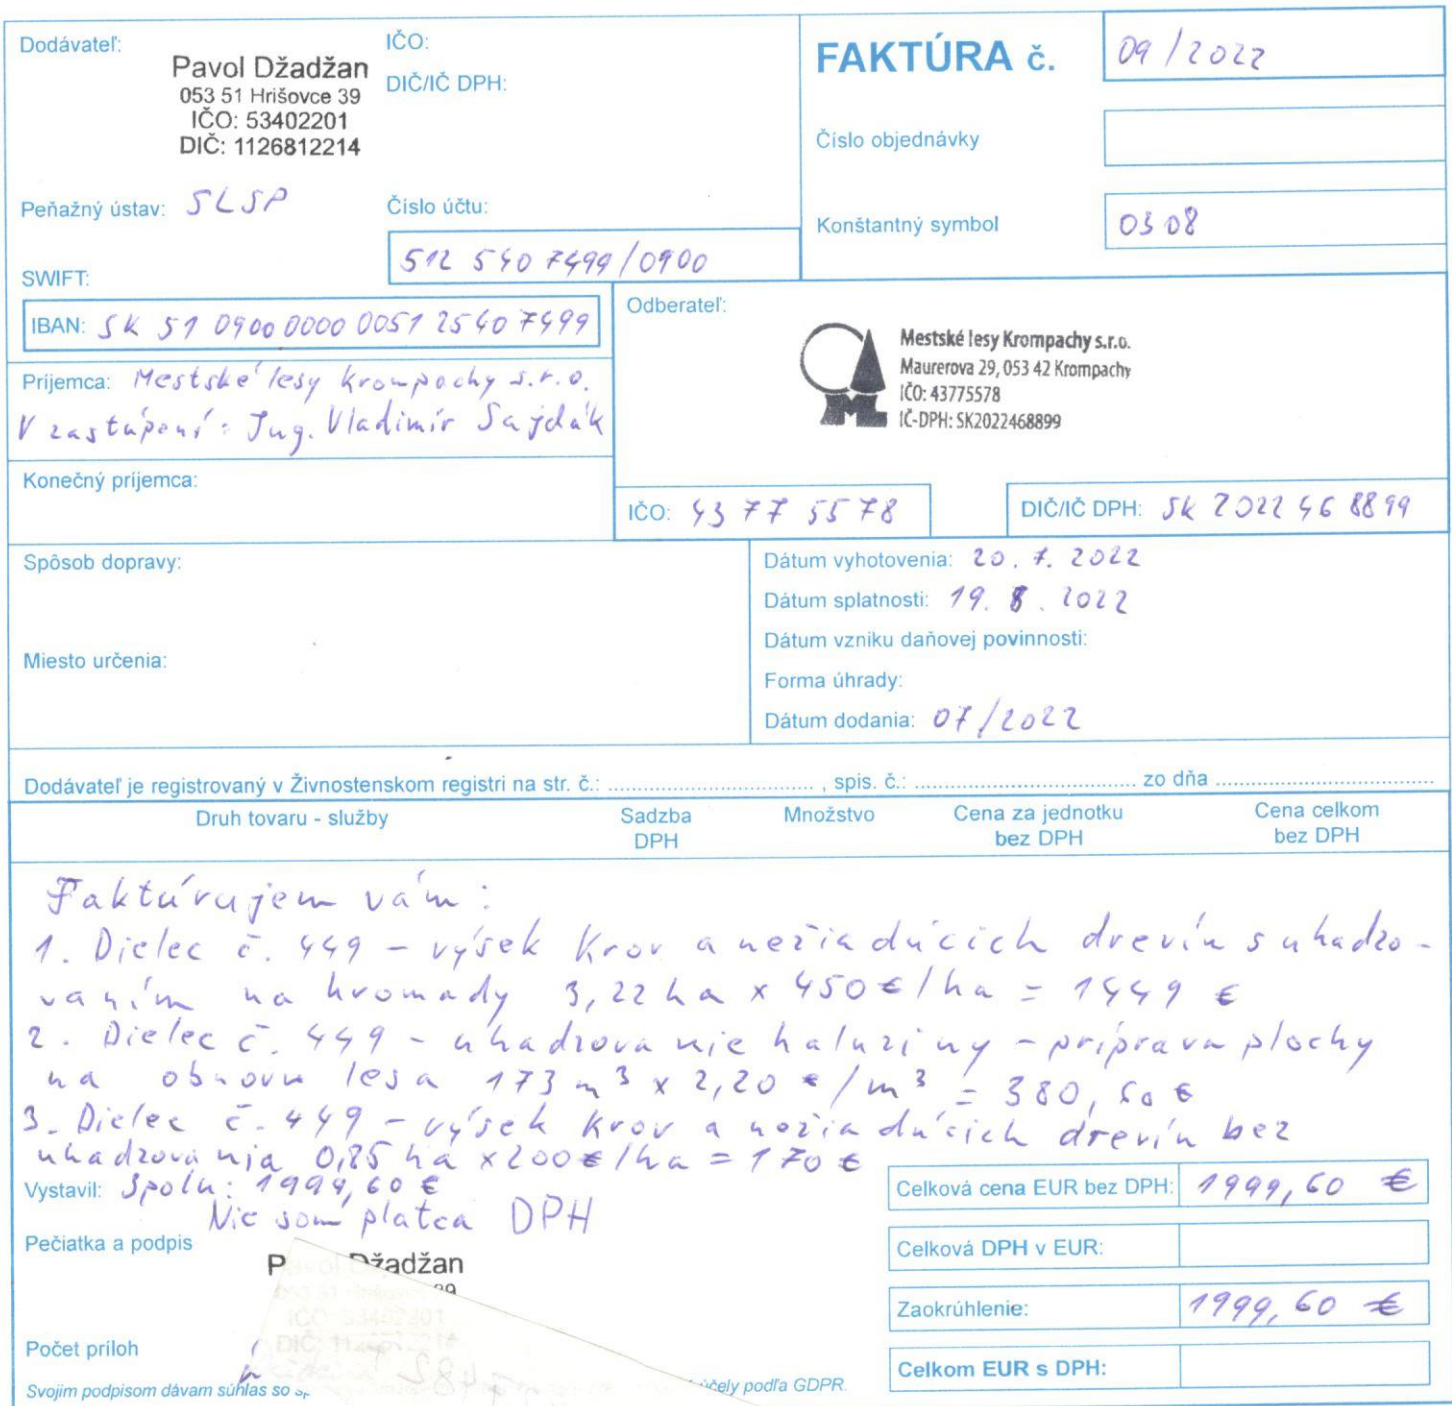 Dodávateľ:
Pavol Džadžan
053 51 Hrišovce 39
IČO: 53402201
DIČ: 1126812214
IČO:
DIČ/IČ DPH:
FAKTÚRA č. 09/2022
Číslo objednávky
Konštantný symbol 0308
Peňažný ústav: SLSP
Číslo účtu:
512 540 7499/0900
SWIFT:
IBAN: SK 51 0900 0000 0051 2540 7499
Príjemca: Mestské lesy Krompachy s.r.o.
V zastúpení: Ing. Vladimír Sajdák
Konečný príjemca:
Odberateľ:
Mestské lesy Krompachy s.r.o.
Maurerova 29, 053 42 Krompachy
IČO: 43775578
IČ-DPH: SK2022468899
IČO: 43 77 55 78
DIČ/IČ DPH: SK 2022 46 88 99
Spôsob dopravy:
Miesto určenia:
Dátum vyhotovenia: 20. 7. 2022
Dátum splatnosti: 19. 8. 2022
Dátum vzniku daňovej povinnosti:
Forma úhrady:
Dátum dodania: 07/2022
Dodávateľ je registrovaný v Živnostenskom registri na str. č.: , spis. č.: zo dňa
Druh tovaru - služby
Sadzba DPH
Množstvo
Cena za jednotku bez DPH
Cena celkom bez DPH
Faktúrujem vám:
1. Dielec č. 449 - výsek krov a nežiadúcich drevín s uhadzo-
vaním na hromady 3,22 ha x 450 €/ha = 1449 €
2. Dielec č. 449 - uhadzovanie haluziny - príprava plochy
na obnovu lesa 173 m³ x 2,20 €/m³ = 380,60 €
3. Dielec č. 449 - výsek krov a nežiadúcich drevín bez
uhadzovania 0,85 ha x 200 €/ha = 170 €
Vystavil: Spolu: 1999,60 €
Nie som platca DPH
Pečiatka a podpis
Džadžan
Počet príloh
Svojim podpisom dávam súhlas so
účely podľa GDPR.
Celková cena EUR bez DPH: 1999,60 €
Celková DPH v EUR:
Zaokrúhlenie: 1999,60 €
Celkom EUR s DPH: